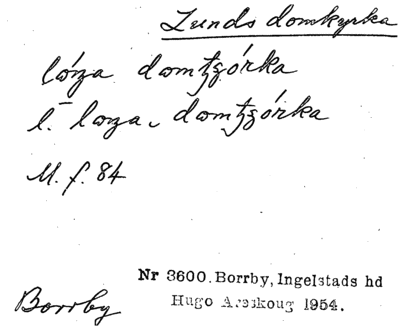 Lunds domkyrka
lóza domtzgórka
l. loza domtzgórka
M. f. 84
Nr 3600. Borrby, Ingelstads hd
Hugo Areskoug 1954.
Borrby